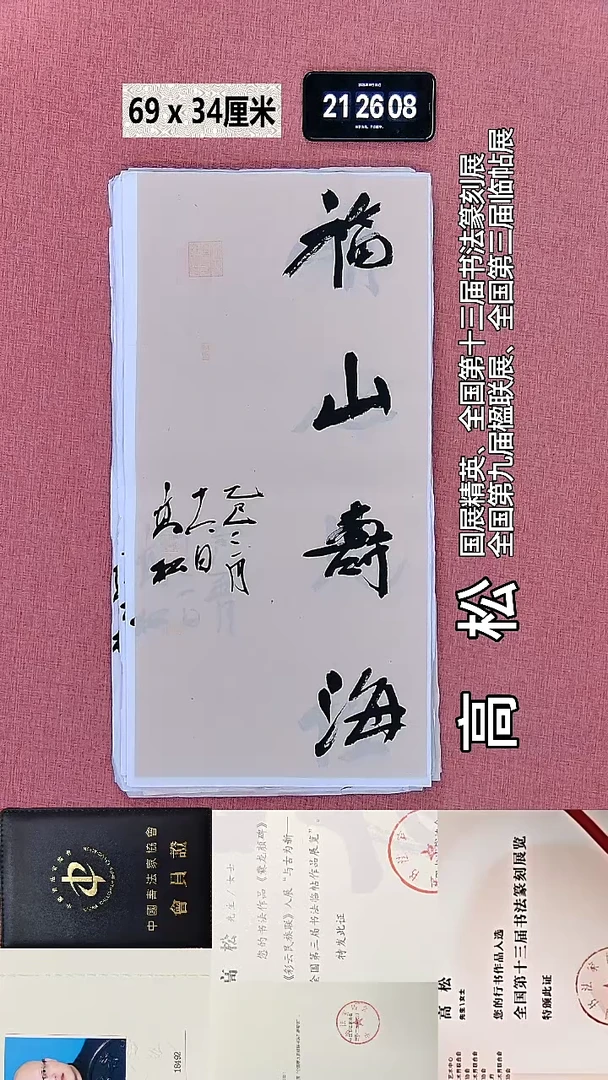 69 x 34厘米
21 26 08
福山壽海
乙巳二月
十六日
高松
高 松
国展精英、全国第十三届书法篆刻展
全国第九届楹联展、全国第三届临帖展
中國書法家協會
會員證
18492
高 松 先生/女士
您的书法作品《爨龙颜碑》
《彩云民族版》入展“与古为新——
全国第三届书法临帖作品展览”。
特发此证
高 松
先生\女士
您的行书作品入选
全国第十三届书法篆刻展览
特颁此证